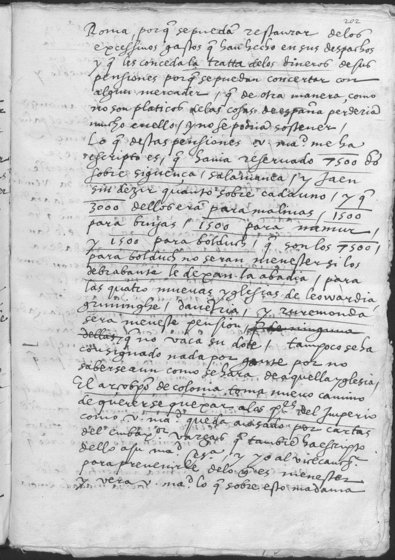 202
Roma, porq̃ se puedã restaurar de los
excessiuos gastos q̃ han hecho en sus despachos
y q̃ les conceda la tratta de los dineros de sus
pensiones porq̃ se puedan concertar con
algun mercader, q̃ de otra manera, como
no son platicos de las cosas de españa perderiã
mucho en ellos y no se podriã sostener /
Lo q̃ destas pensiones v. mad. me ha
rescripto es, q̃ hauia reseruado 7500 dos
sobre siguença, salamanca, y Jaen
sin dezir quanto sobre cada uno, y q̃
3000 dellos erã para malinas, 1500
para brujas, 1500 para namur,
y 1500 para bolduch, q̃ son los 7500,
para bolduch no seran menester si los
de brabante le dexan la abadia, para
las quatro nueuas yglesias de leowardia,
grunninghe, dauentria, y ruremonda
sera menester pension, ninguna
dellas, q̃ no vaca su dote, tampoco se ha
consignado nada por por no
saberse aun como se hara de aquella yglesia,
El arçobpo de colonia toma nueuo camino
de quererse quexar a los pes del Imperio
como v. mad. queda auisado por cartas
del vargas q̃ tambiẽ ha escripto
dello a su mad. y yo al
para preuenirle de lo q̃ es menester
y vera v. mad. lo q̃ sobre esto madama